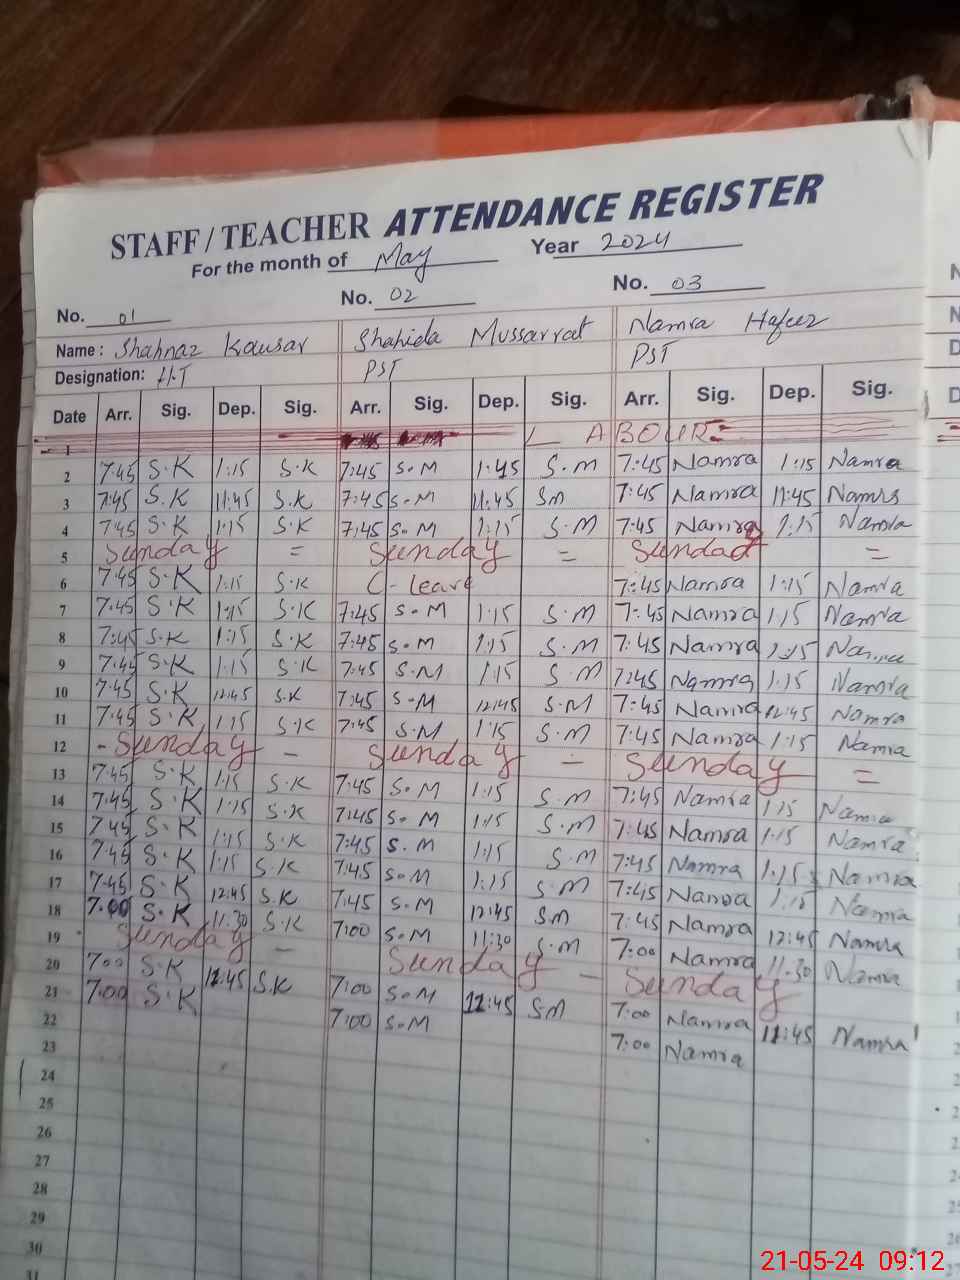 STAFF / TEACHER ATTENDANCE REGISTER
For the month of May Year 2024
No. 01 No. 02 No. 03
Name : Shahnaz Kausar Shahida Mussarrat Namra Hafeez
Designation: H.T PST PST
Date Arr. Sig. Dep. Sig. Arr. Sig. Dep. Sig. Arr. Sig. Dep. Sig.
1 LABOUR
2 7:45 S.K 1:15 S.K 7:45 S.M 1:45 S.M 7:45 Namra 1:15 Namra
3 7:45 S.K 11:45 S.K 7:45 S.M 11:45 SM 7:45 Namra 11:45 Namra
4 7:45 S.K 1:15 S.K 7:45 S.M 1:15 S.M 7:45 Namra 1:15 Namra
5 Sunday = Sunday = Sunday =
6 7:45 S.K 1:15 S.K C-leave 7:45 Namra 1:15 Namra
7 7:45 S.K 1:15 S.K 7:45 S.M 1:15 S.M 7:45 Namra 1:15 Namra
8 7:45 S.K 1:15 S.K 7:45 S.M 1:15 S.M 7:45 Namra 1:15 Namra
9 7:45 S.K 1:15 S.K 7:45 S.M 1:15 S.M 7:45 Namra 1:15 Namra
10 7:45 S.K 12:45 S.K 7:45 S.M 12:45 S.M 7:45 Namra 12:45 Namra
11 7:45 S.K 1:15 S.K 7:45 S.M 1:15 S.M 7:45 Namra 1:15 Namra
12 - Sunday - Sunday = Sunday =
13 7:45 S.K 1:15 S.K 7:45 S.M 1:15 S.M 7:45 Namra 1:15 Namra
14 7:45 S.K 1:15 S.K 7:45 S.M 1:15 S.M 7:45 Namra 1:15 Namra
15 7:45 S.K 1:15 S.K 7:45 S.M 1:15 S.M 7:45 Namra 1:15 Namra
16 7:45 S.K 1:15 S.K 7:45 S.M 1:15 S.M 7:45 Namra 1:15 Namra
17 7:45 S.K 12:45 S.K 7:45 S.M 12:45 SM 7:45 Namra 12:45 Namra
18 7:00 S.K 11:30 S.K 7:00 S.M 11:30 S.M 7:00 Namra 11:30 Namra
19 Sunday - Sunday - Sunday
20 7:00 S.K 12:45 S.K 7:00 S.M 12:45 SM 7:00 Namra 12:45 Namra
21 7:00 S.K 7:00 S.M 7:00 Namra
22
23
24
25
26
27
28
29
30
31
21-05-24 09:12